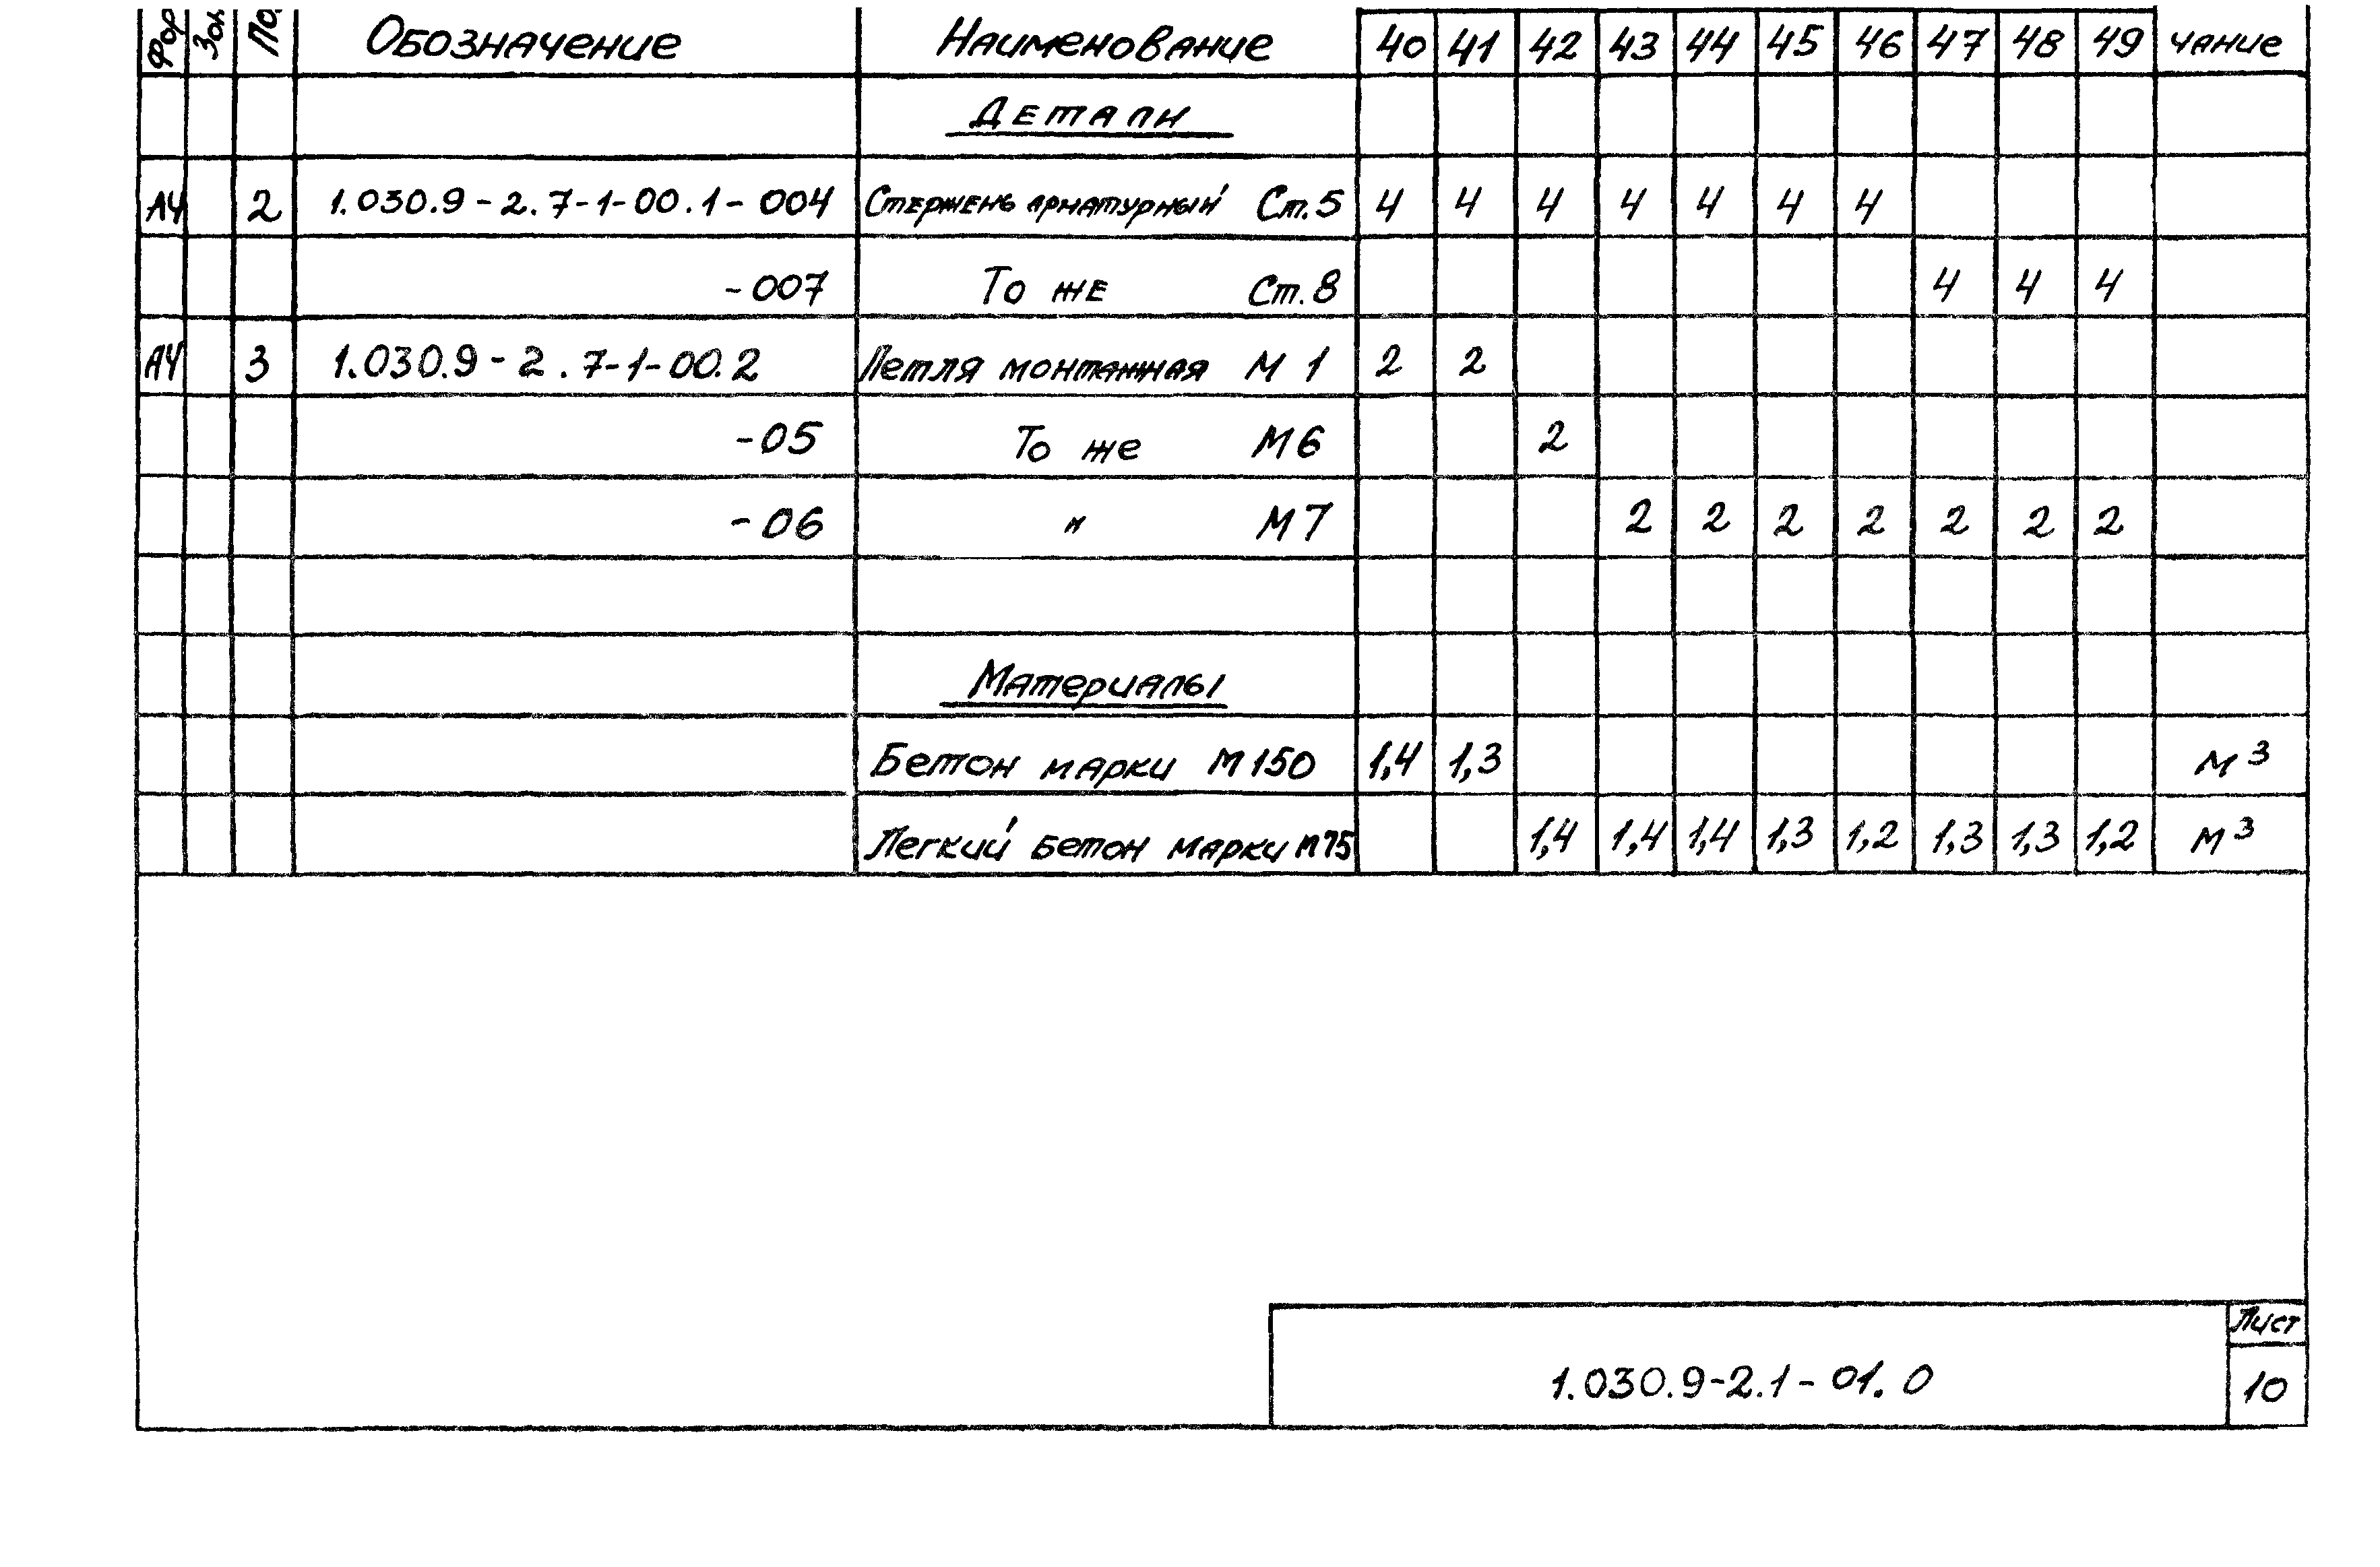 Фор Зон По. Обозначение Наименование 40 41 42 43 44 45 46 47 48 49 чание
Детали
А4 2 1.030.9-2.7-1-00.1-004 Стержень арматурный Ст.5 4 4 4 4 4 4 4
-007 То же Ст.8 4 4 4
А4 3 1.030.9-2.7-1-00.2 Петля монтажная М 1 2 2
-05 То же М6 2
-06 " М7 2 2 2 2 2 2 2
Материалы
Бетон марки М150 1,4 1,3 м³
Легкий бетон марки М75 1,4 1,4 1,4 1,3 1,2 1,3 1,3 1,2 м³
Лист
1.030.9-2.1-01.0 10